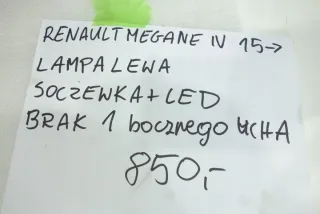 RENAULT MEGANE IV 15→
LAMPA LEWA
SOCZEWKA + LED
BRAK 1 bocznego UCHA
850,-